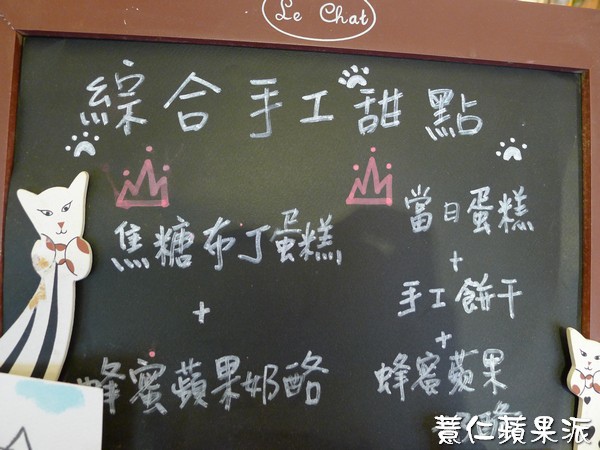 Le Chat
綜合手工甜點
焦糖布丁蛋糕
+
蜂蜜蘋果奶酪
當日蛋糕
+
手工餅干
+
蜂蜜蘋果
奶酪
薏仁蘋果派